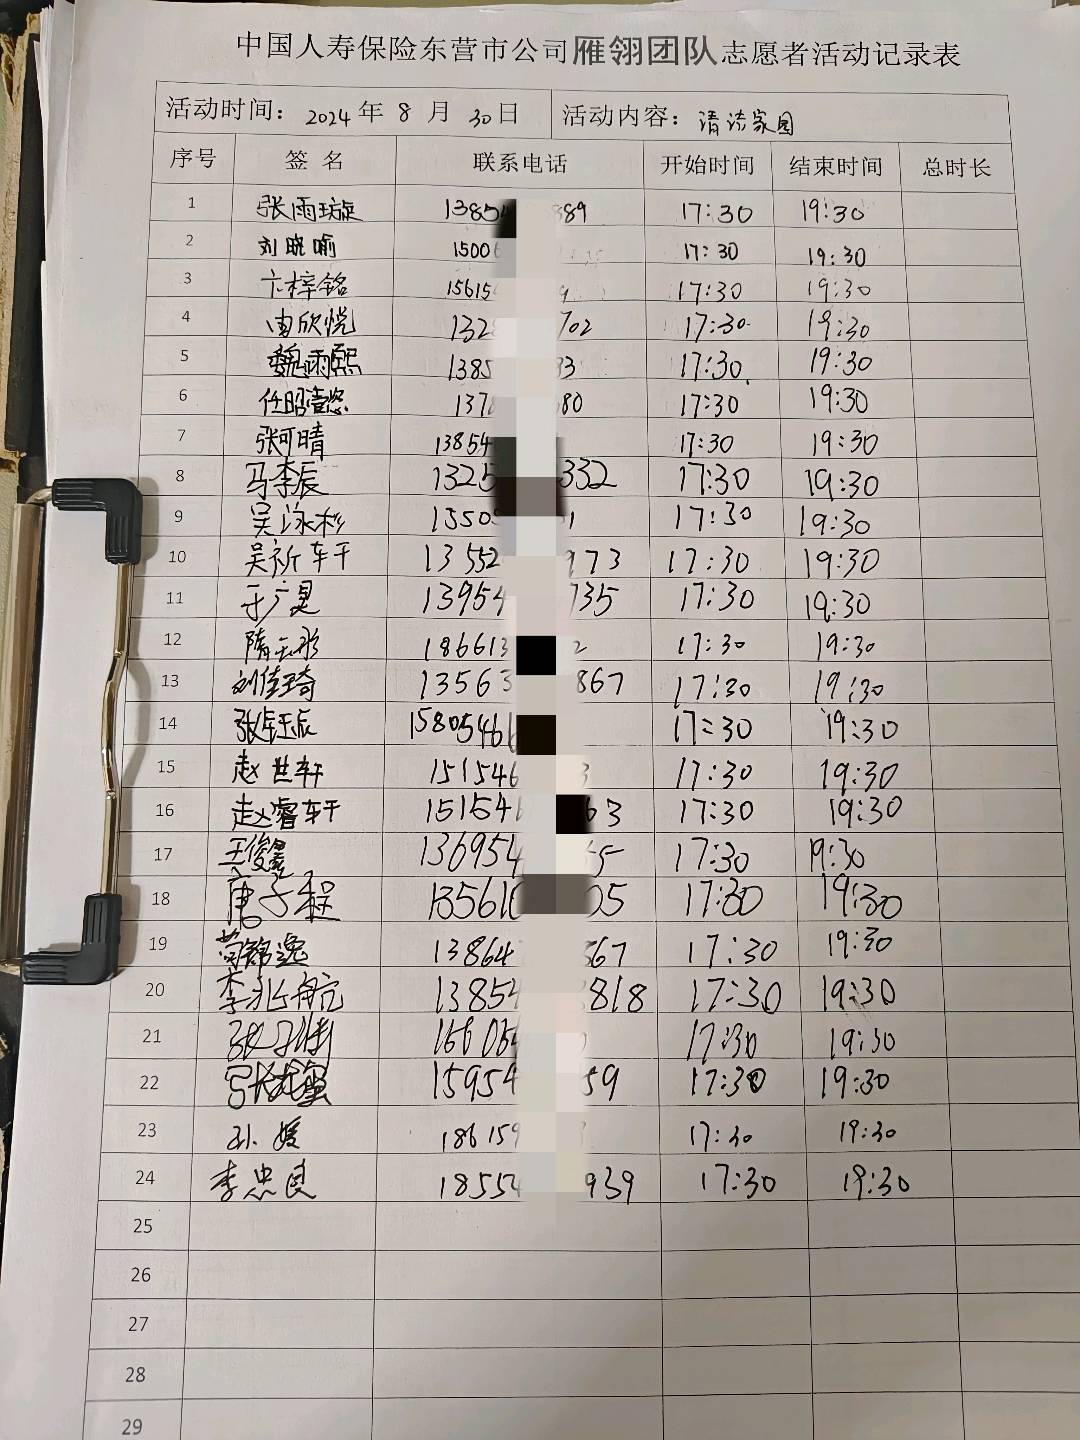 中国人寿保险东营市公司雁翎团队志愿者活动记录表
活动时间： 2024年 8 月 30日 活动内容： 清洁家园
序号 签 名 联系电话 开始时间 结束时间 总时长
1 张雨璇 13854 889 17:30 19:30
2 刘晓喻 1500 17:30 19:30
3 卞梓铭 15615 9 17:30 19:30
4 由欣悦 132 702 17:30 19:30
5 魏雨熙 1385 93 17:30 19:30
6 任昭 137 80 17:30 19:30
7 张可晴 13854 17:30 19:30
8 马李辰 1325 332 17:30 19:30
9 吴泳杉 1550 1 17:30 19:30
10 吴祈轩 13552 973 17:30 19:30
11 于广昊 13954 735 17:30 19:30
12 隋玉彤 186613 2 17:30 19:30
13 刘佳琦 13563 867 17:30 19:30
14 张钰辰 15805461 17:30 19:30
15 赵世轩 151546 3 17:30 19:30
16 赵睿轩 151546 63 17:30 19:30
17 王俊鑫 136954 55 17:30 19:30
18 唐子程 135610 05 17:30 19:30
19 苟锦逸 13864 567 17:30 19:30
20 李兆航 13854 818 17:30 19:30
21 166054 17:30 19:30
22 15954 59 17:30 19:30
23 孙媛 186159 17:30 19:30
24 李忠良 18554 939 17:30 19:30
25
26
27
28
29